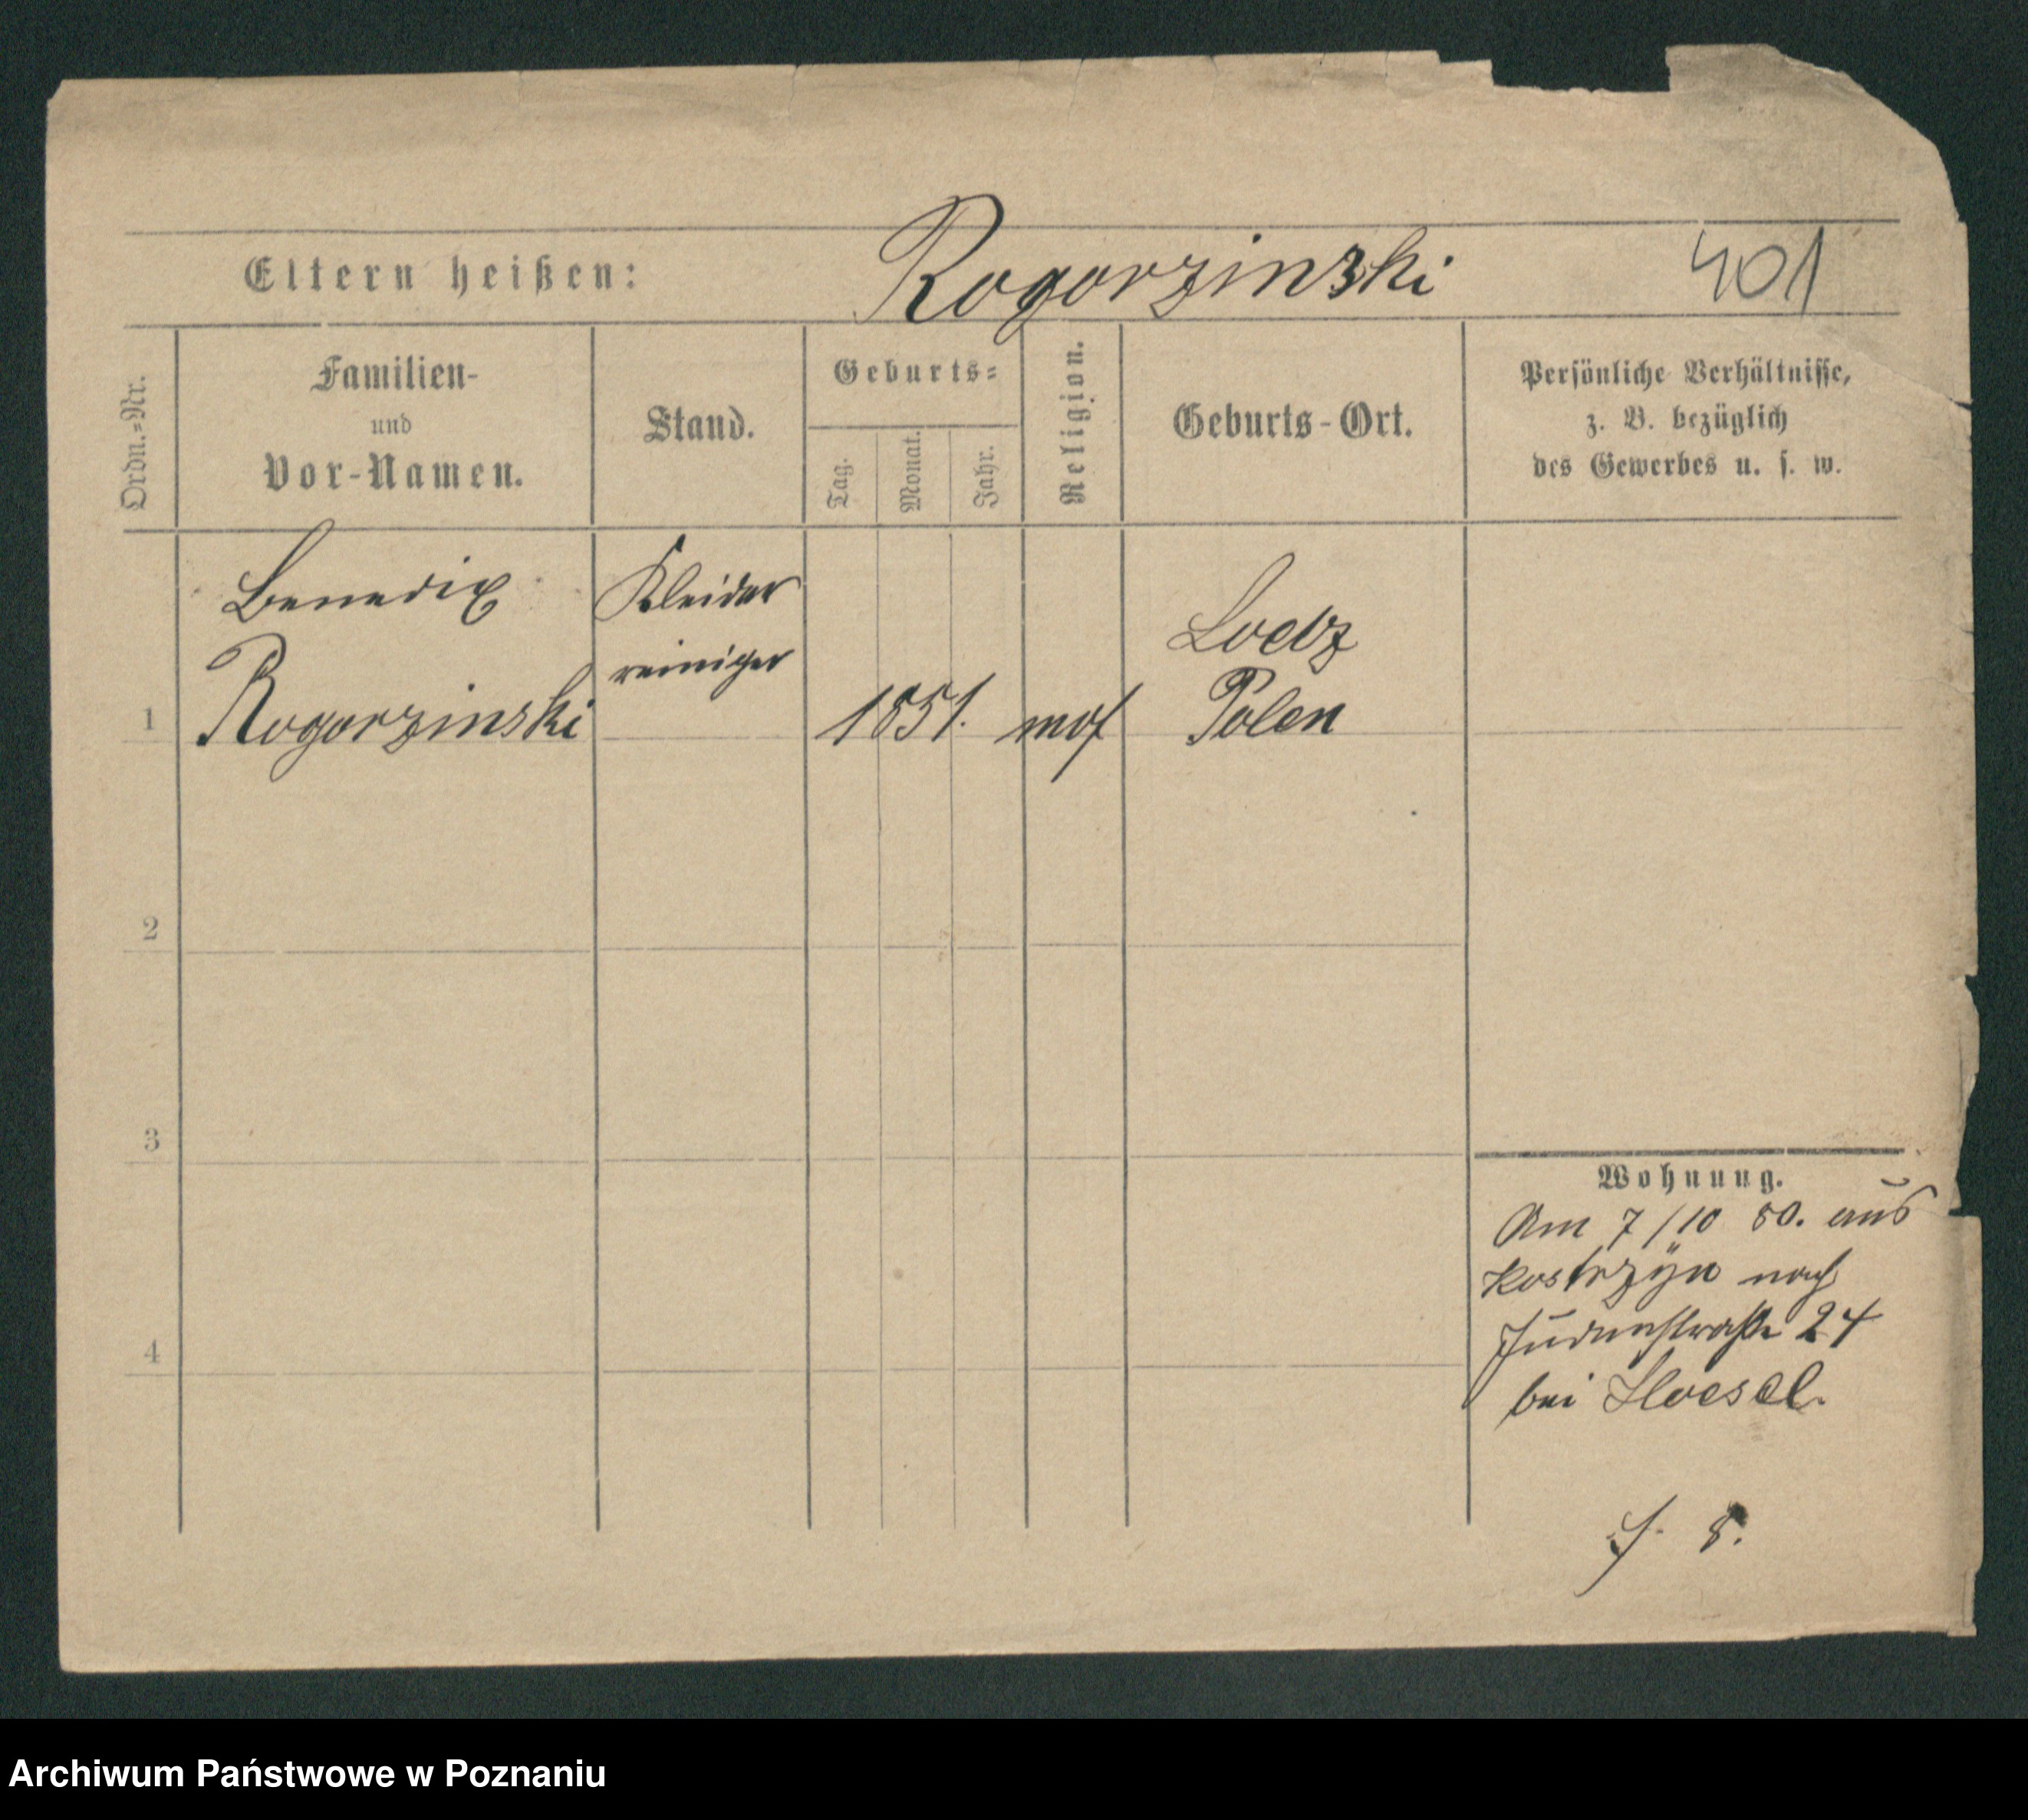 Eltern heißen: Rogorzinski 401
Ordn.=Nr.
Familien-
und
Vor-Namen.
Stand.
Geburts=
Tag.
Monat.
Jahr.
Religion.
Geburts-Ort.
Persönliche Verhältnisse,
z. B. bezüglich
des Gewerbes u. s. w.
Benedix Kleider
Rogorzinski reiniger
1 1851. mos Lodz
Polen
2
3
4
Wohnung.
Am 7/10 80. aus
Kostrzyn nach
Judenstraße 24
bei
8.
Archiwum Państwowe w Poznaniu